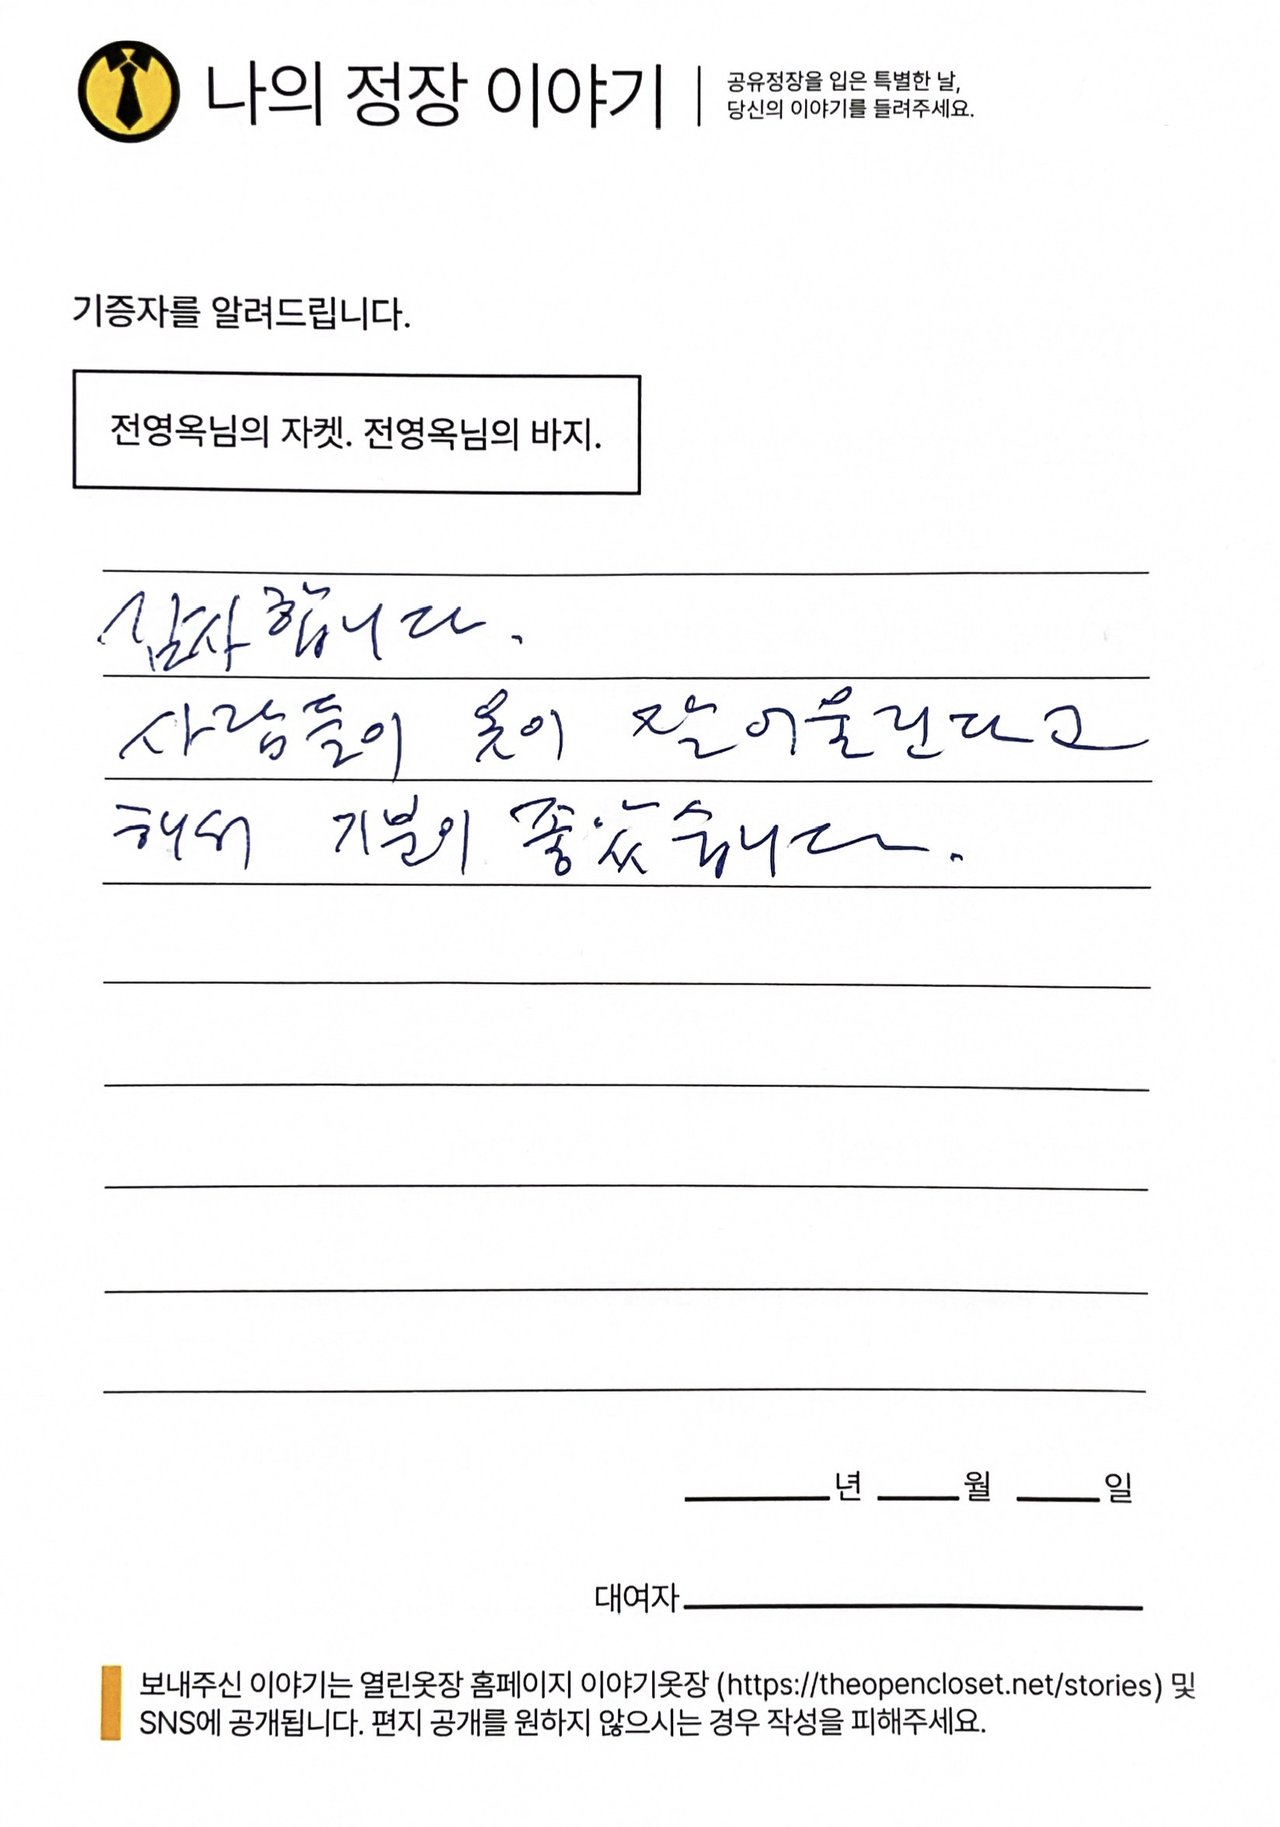 나의 정장 이야기
공유정장을 입은 특별한 날,
당신의 이야기를 들려주세요.
기증자를 알려드립니다.
전영옥님의 자켓. 전영옥님의 바지.
감사합니다.
사람들이 옷이 잘 어울린다고
해서 기분이 좋았습니다.
년 월 일
대여자
보내주신 이야기는 열린옷장 홈페이지 이야기옷장 (https://theopencloset.net/stories) 및
SNS에 공개됩니다. 편지 공개를 원하지 않으시는 경우 작성을 피해주세요.